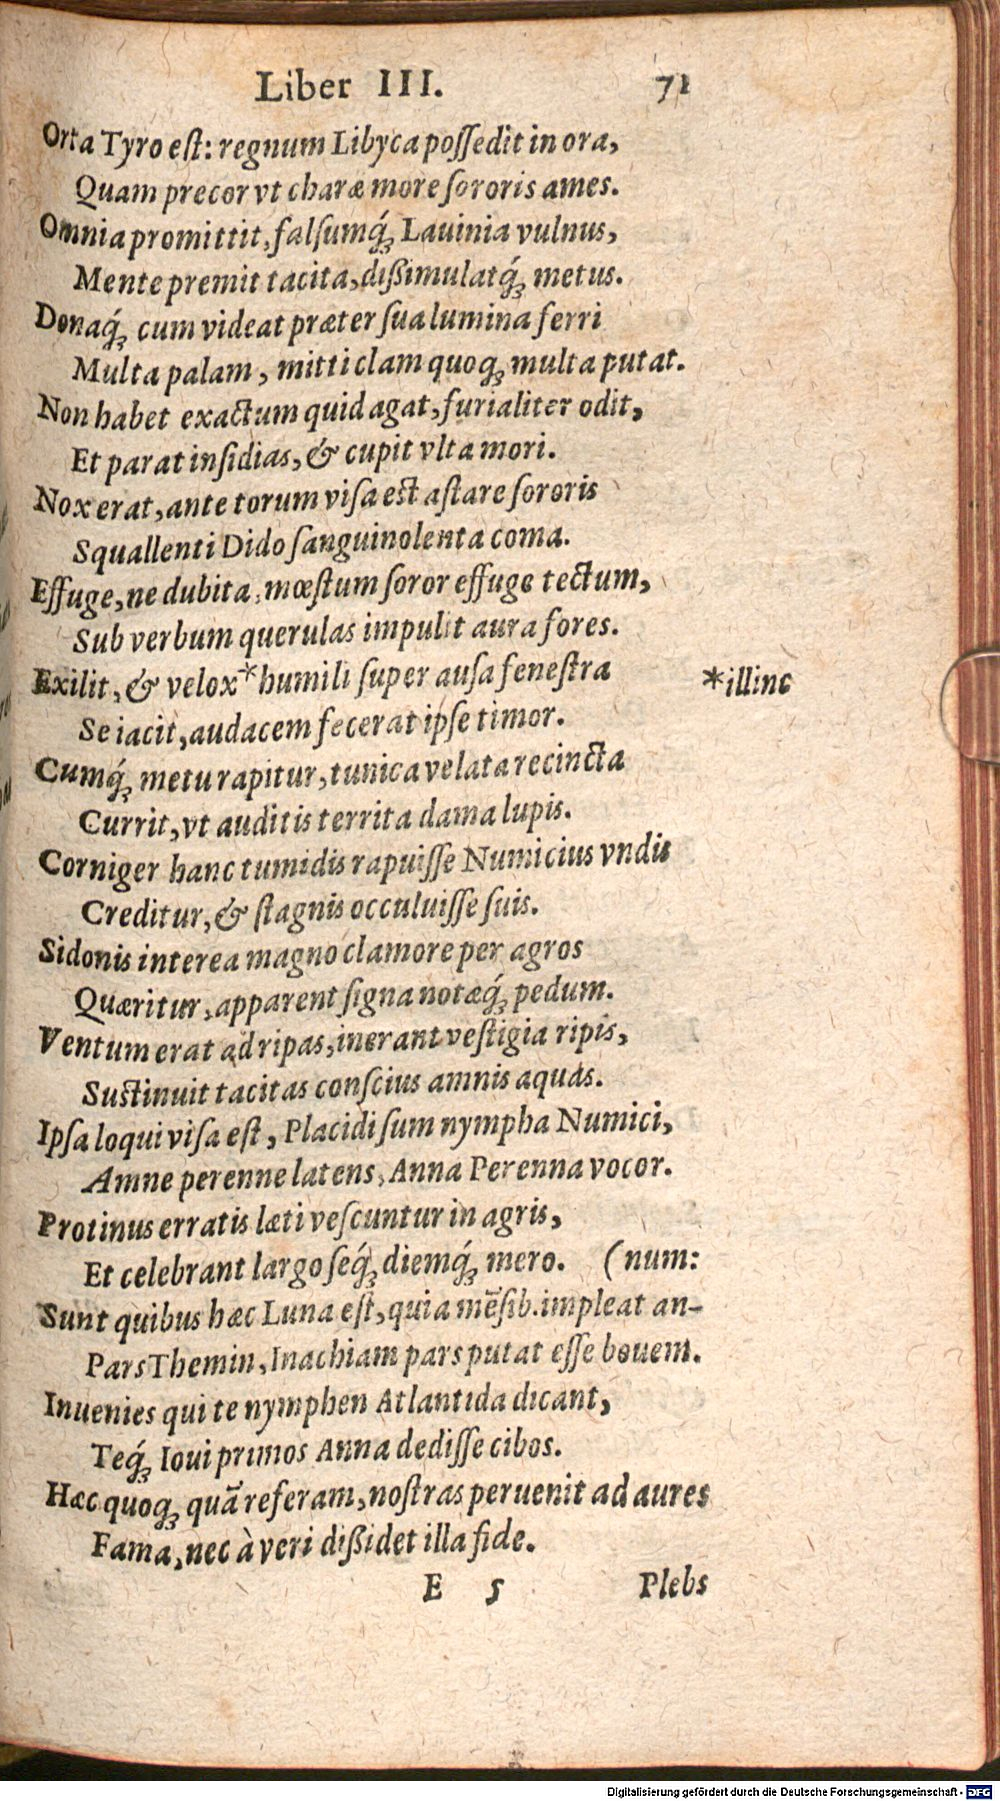 Liber III. 71
Orta Tyro eſt: regnum Libyca poſſedit in ora,
Quam precor vt charæ more ſororis ames.
Omnia promittit, falſumq́ꝫ Lauinia vulnus,
Mente premit tacita, dißimulatq́ꝫ metus.
Donaq́ꝫ cum videat præter ſua lumina ferri
Multa palam, mitti clam quoqꝫ multa putat.
Non habet exactum quid agat, furialiter odit,
Et parat inſidias, & cupit vlta mori.
Nox erat, ante torum viſa est aſtare ſororis
Squallenti Dido ſanguinolenta coma.
Effuge, ne dubita, mœſtum ſoror effuge tectum,
Sub verbum querulas impulit aura fores.
Exilit, & velox *humili ſuper auſa feneſtra *illinc
Se iacit, audacem fecerat ipſe timor.
Cumq́ꝫ metu rapitur, tunica velata recincta
Currit, vt auditis territa dama lupis.
Corniger hanc tumidis rapuiſſe Numicius vndis
Creditur, & ſtagnis occuluiſſe ſuis.
Sidonis interea magno clamore per agros
Quæritur, apparent ſigna notæq́ꝫ pedum.
Ventum erat ad ripas, inerant veſtigia ripis,
Sustinuit tacitas conſcius amnis aquas.
Ipſa loqui viſa eſt, Placidi ſum nympha Numici,
Amne perenne latens, Anna Perenna vocor.
Protinus erratis læti veſcuntur in agris,
Et celebrant largo ſeq́ꝫ diemq́ꝫ mero. (num:
Sunt quibus hæc Luna eſt, quia mēſib. impleat an-
Pars Themin, Inachiam pars putat eſſe bouem.
Inuenies qui te nymphen Atlantida dicant,
Teq́ꝫ Ioui primos Anna dediſſe cibos.
Hæc quoqꝫ quā referam, noſtras peruenit ad aures
Fama, nec à veri dißidet illa fide.
E 5 Plebs
Digitalisierung gefördert durch die Deutsche Forschungsgemeinschaft - DFG